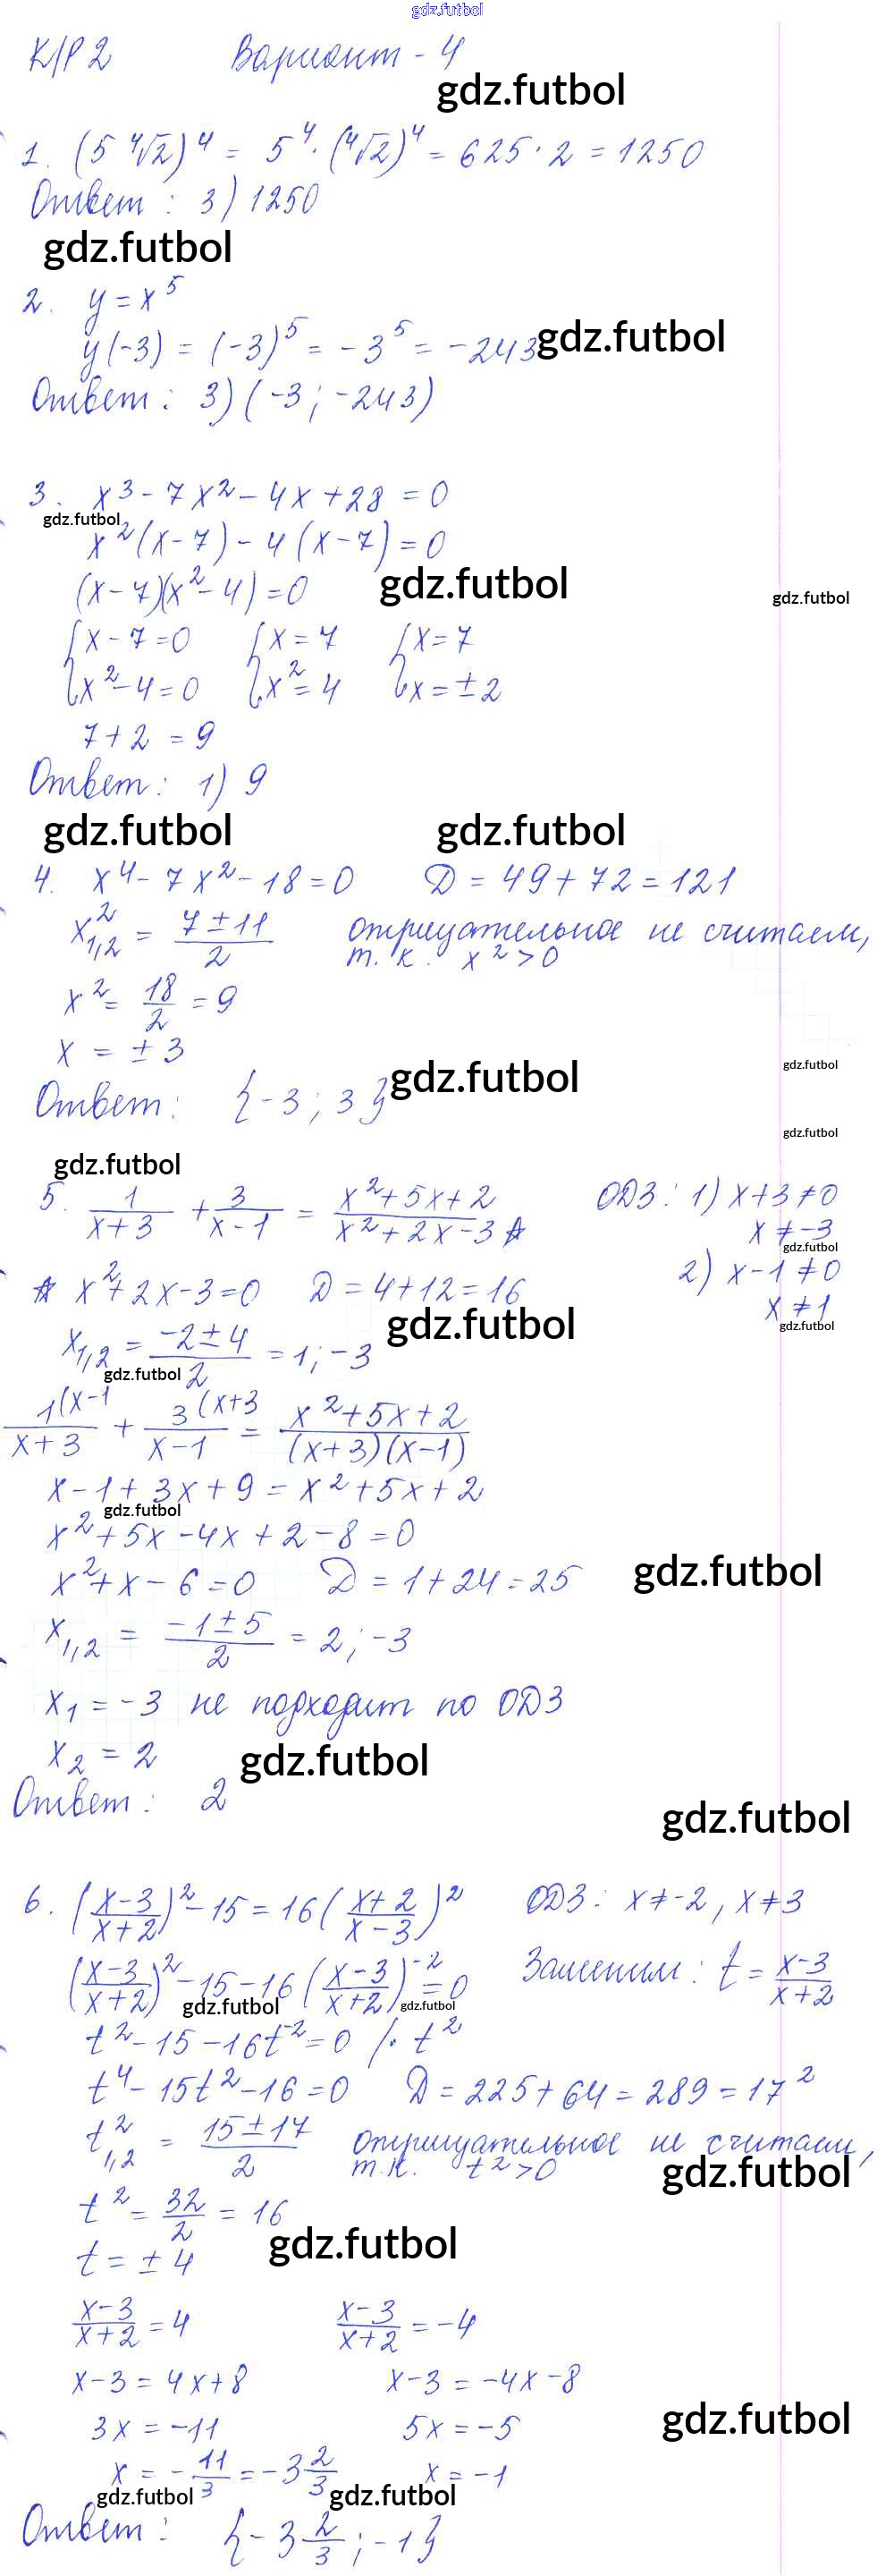 gdz.futbol
К/Р 2 Вариант - 4
gdz.futbol
1. (5 ⁴√2)⁴ = 5⁴ · (⁴√2)⁴ = 625 · 2 = 1250
Ответ : 3) 1250
gdz.futbol
2. y = x⁵
y(-3) = (-3)⁵ = -3⁵ = -243
gdz.futbol
Ответ : 3) (-3 ; -243)
3. x³ - 7x² - 4x + 28 = 0
gdz.futbol
x²(x-7) - 4(x-7) = 0
(x-7)(x²-4) = 0
gdz.futbol
gdz.futbol
{x-7=0 {x=7 {x=7
{x²-4=0 {x²=4 {x=±2
7+2 = 9
Ответ : 1) 9
gdz.futbol gdz.futbol
4. x⁴ - 7x² - 18 = 0 D = 49 + 72 = 121
x²₁,₂ = (7±11)/2 отрицательное не считаем,
т. к. x² > 0
x² = 18/2 = 9
x = ± 3
gdz.futbol
gdz.futbol
Ответ : {-3 ; 3}
gdz.futbol
gdz.futbol
5. 1/(x+3) + 3/(x-1) = (x²+5x+2)/(x²+2x-3)☆ ОДЗ : 1) x+3≠0
x ≠ -3
gdz.futbol
☆ x²+2x-3=0 D = 4+12 = 16 2) x-1 ≠0
x ≠ 1
gdz.futbol
gdz.futbol
x₁,₂ = (-2±4)/2 = 1 ; -3
gdz.futbol
1(x-1/(x+3) + 3(x+3/(x-1) = (x²+5x+2)/((x+3)(x-1))
x-1+3x+9 = x²+5x+2
gdz.futbol
x²+5x-4x+2-8=0
x²+x-6=0 D = 1+24=25
gdz.futbol
x₁,₂ = (-1±5)/2 = 2 ; -3
x₁ = -3 не подходит по ОДЗ
x₂ = 2
gdz.futbol
Ответ : 2
gdz.futbol
6. ((x-3)/(x+2))² - 15 = 16((x+2)/(x-3))² ОДЗ : x≠-2, x≠3
((x-3)/(x+2))² - 15 - 16((x-3)/(x+2))⁻² = 0 Заменим : t = (x-3)/(x+2)
gdz.futbol gdz.futbol
t² - 15 - 16t⁻² = 0 /· t²
t⁴ - 15t² - 16 = 0 D = 225+64 = 289 = 17²
t²₁,₂ = (15±17)/2 отрицательное не считаем,
т.к. t² > 0
gdz.futbol
t² = 32/2 = 16
gdz.futbol
t = ± 4
(x-3)/(x+2) = 4 (x-3)/(x+2) = -4
x-3 = 4x+8 x-3 = -4x-8
gdz.futbol
3x = -11 5x = -5
x = -11/3 = -3 2/3 x = -1
gdz.futbol gdz.futbol
Ответ : {-3 2/3 ; -1}